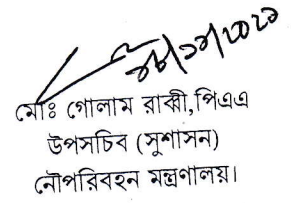 মোঃ গোলাম রাব্বী,পিএএ
উপসচিব (সুশাসন)
নৌপরিবহন মন্ত্রণালয়।